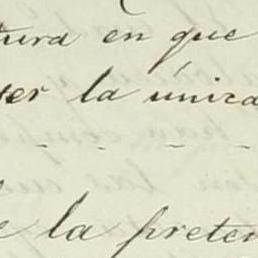 tura en que
ser la única
e la preten